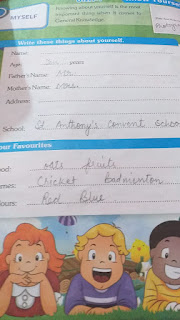 MYSELF
Knowing about yourself is the most
important thing when it comes to
General Knowledge.
Write these things about yourself.
Name:
Age: years
Father's Name:
Mother's Name:
Address:
School: St Anthony's Convent School
our Favourites
ood: oats fruits
mes: Chicket badminton
lours: Red Blue